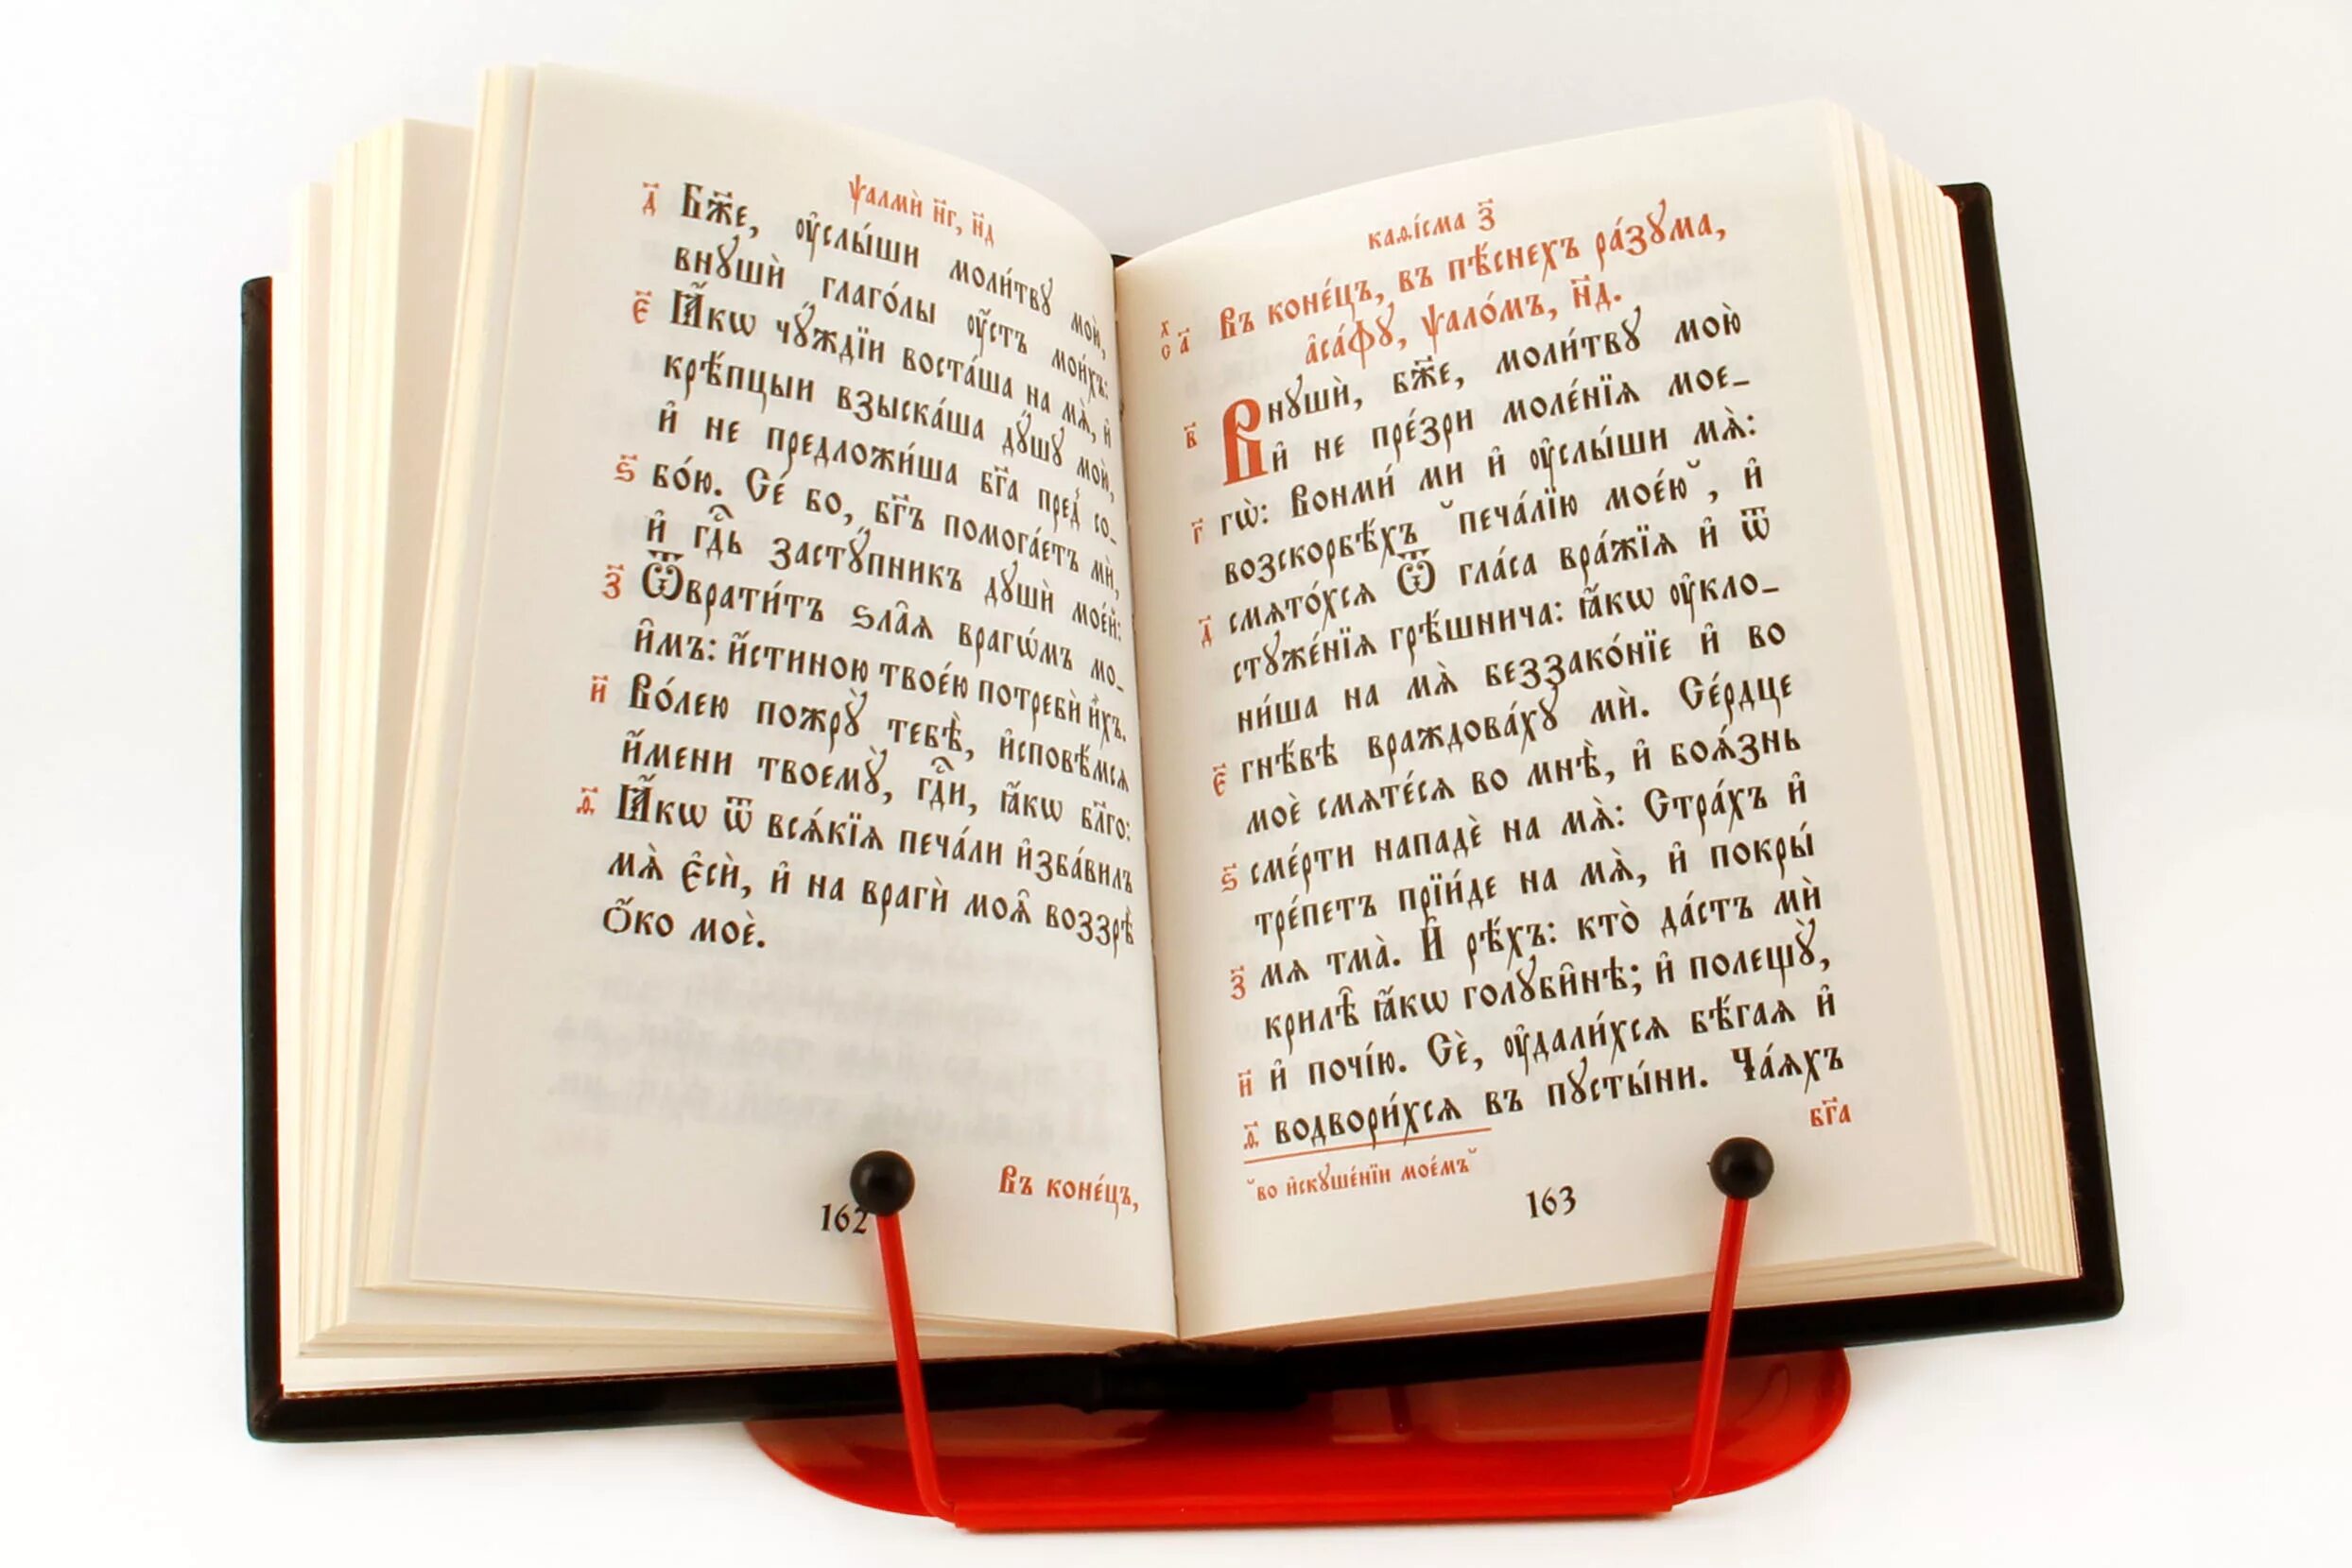 ѱалмѝ н҃г, н҃д
д҃ Бж҃е, ᲂу҆слы́ши моли́твꙋ мою̀,
внꙋшѝ глаго́лы ᲂу҆́стъ мои́хъ:
є҃ Ꙗ҆́кѡ чꙋ́ждїи воста́ша на мѧ̀, и҆
крѣ́пцыи взыска́ша дꙋ́шꙋ мою̀,
и҆ не предложи́ша бг҃а пред̾ со_
ѕ҃ бо́ю. Се́ бо, бг҃ъ помога́етъ мѝ,
и҆ гдⷭ҇ь застꙋ́пникъ дꙋшѝ мое́й:
з҃ Ѿврати́тъ ѕла̑ѧ врагѡ́мъ мо_
и̑мъ: и҆́стиною твое́ю потребѝ и҆̀хъ.
и҃ Во́лею пожрꙋ̀ тебѣ̀, и҆сповѣ́мсѧ
и҆́мени твоемꙋ̀, гдⷭ҇и, ꙗ҆́кѡ бл҃го:
ѳ҃ Ꙗ҆́кѡ ѿ всѧ́кїѧ печа́ли и҆зба́вилъ
мѧ̀ є҆сѝ, и҆ на врагѝ моѧ̑ воззрѣ̀
ѻ҆́ко моѐ.
Въ коне́цъ,
162
каѳі́сма з҃
Въ коне́цъ, въ пѣ́снехъ ра́зꙋма,
х с а҃ а҆са́фꙋ, ѱало́мъ, н҃д.
в҃ Внꙋшѝ, бж҃е, моли́твꙋ мою̀
и҆ не пре́зри моле́нїѧ мое_
г҃ гѡ̀: Вонми́ ми и҆ ᲂу҆слы́ши мѧ̀:
возскорбѣ́хъ ˘печа́лїю мое́ю˘, и҆
д҃ смѧто́хсѧ Ѿ гла́са вра́жїѧ и҆ ѿ
стꙋже́нїѧ грѣ́шнича: ꙗ҆́кѡ ᲂу҆кло_
ни́ша на мѧ̀ беззако́нїе и҆ во
є҃ гнѣ́вѣ враждова́хꙋ мѝ. Се́рдце
моѐ смѧте́сѧ во мнѣ̀, и҆ боѧ́знь
ѕ҃ сме́рти нападѐ на мѧ̀: Стра́хъ и҆
тре́петъ прїи́де на мѧ̀, и҆ покры́
з҃ мѧ тма̀. И҆ рѣ́хъ: кто̀ да́стъ мѝ
крилѣ̑ ꙗ҆́кѡ голꙋби̑нѣ; и҆ полещꙋ̀,
и҃ и҆ почі́ю. Сѐ, ᲂу҆дали́хсѧ бѣ́гаѧ и҆
ѳ҃ водвори́хсѧ въ пꙋсты́ни. Ча́ѧхъ
бг҃а
˘во и҆скꙋше́нїи мое́мъ˘
163